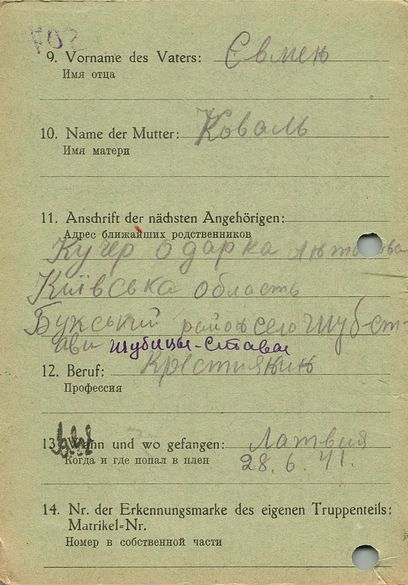 9. Vorname des Vaters: Євмен
Имя отца
10. Name der Mutter: Коваль
Имя матери
11. Anschrift der nächsten Angehörigen:
Адрес ближайших родственников
Кучер Одарка
Київська область
Бужський район село Шубст-
ави Шубицы-Ставы
12. Beruf: Крестиянин
Профессия
13. Wann und wo gefangen: Латвия
Когда и где попал в плен 28.6.41.
14. Nr. der Erkennungsmarke des eigenen Truppenteils:
Matrikel=Nr.
Номер в собственной части